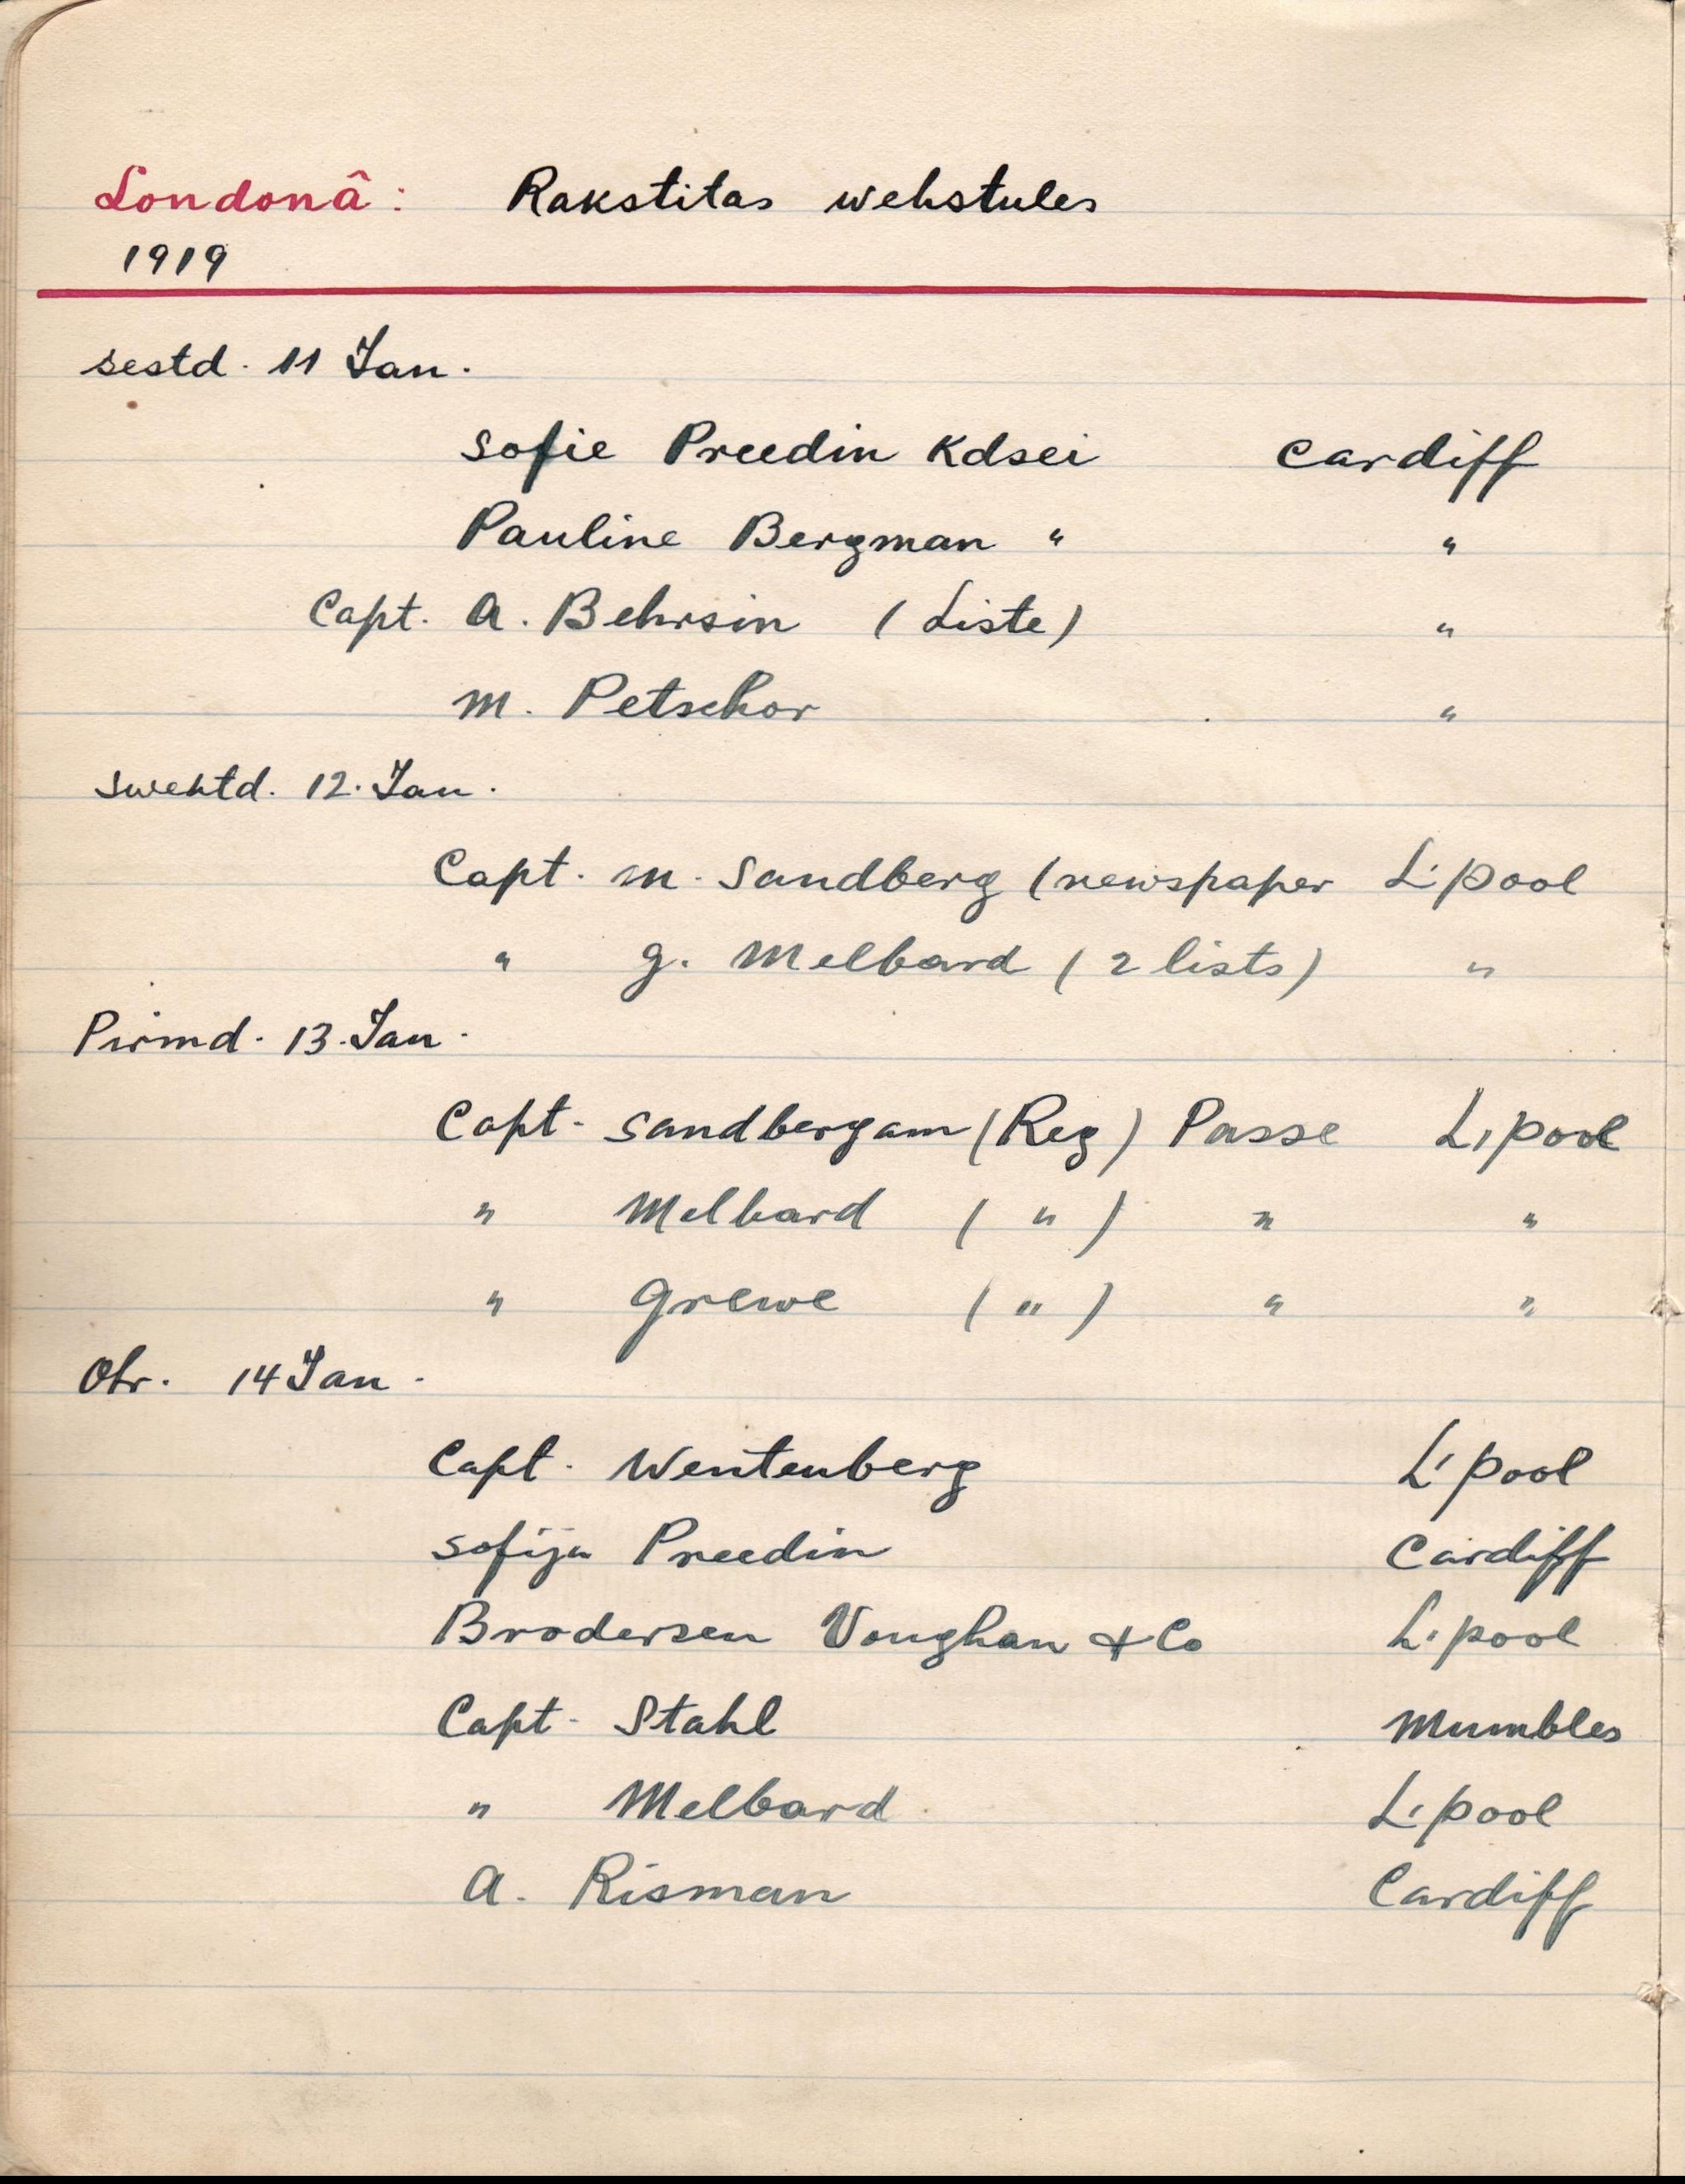 Londonâ: Rakstitas wehstules
1919
sestd. 11 Jan.
Sofie Preedin Kdsei Cardiff
Pauline Bergman " "
Capt. A. Behrsin (Liste) "
M. Petschor "
Swehtd. 12. Jan.
Capt. M. Sandberg (newspaper L'pool
" G. Melbard (2 lists) "
Pirmd. 13. Jan.
Capt. Sandbergam (Reg) Passe L'pool
" Melbard ( " ) " "
" Grewe ( " ) " "
Otr. 14 Jan.
Capt. Wentenberg L'pool
Sofija Preedin Cardiff
Brodersen Voughan & Co L'pool
Capt. Stahl Mumbles
" Melbard L'pool
A. Risman Cardiff